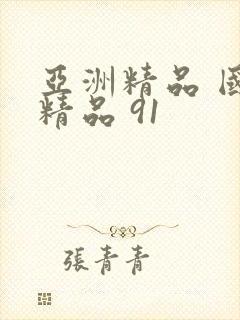 亞洲精品 國
精品 91
張青青